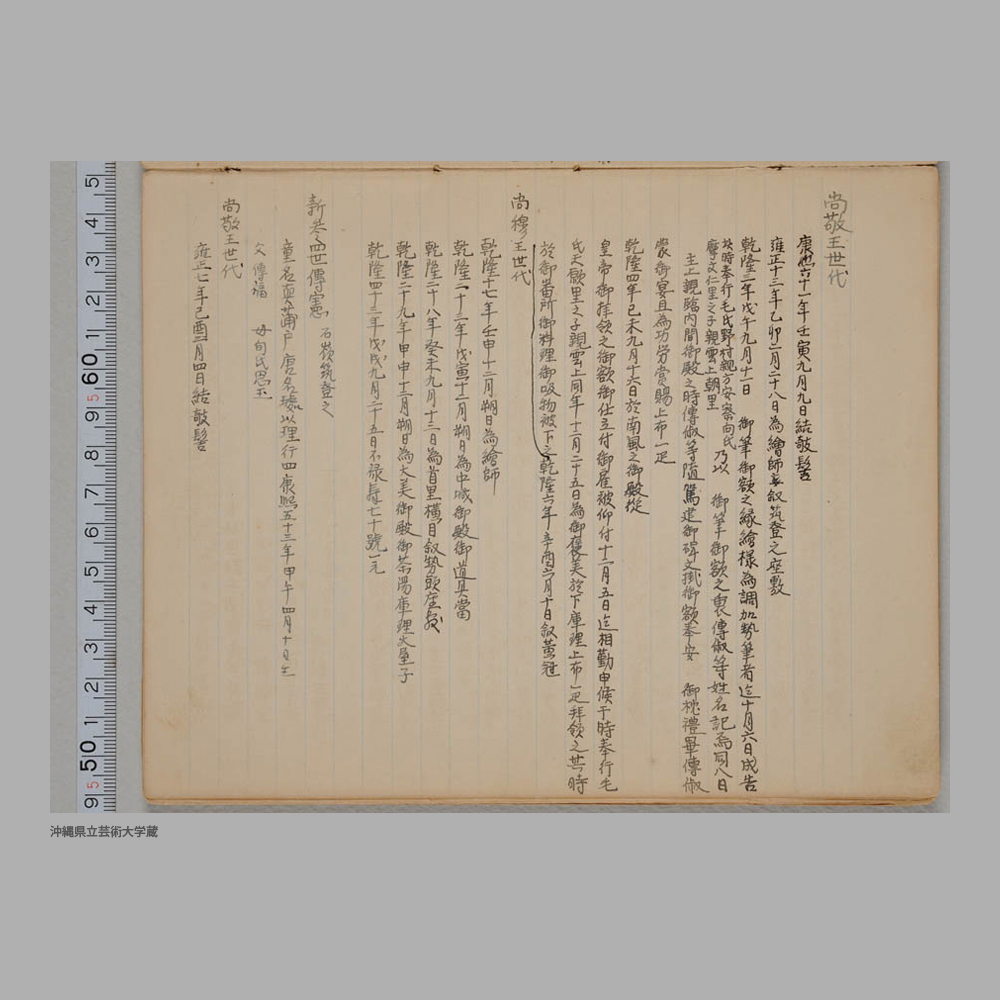 尚敬王世代
康熙六十一年壬寅九月九日結敧髻
雍正十三年乙卯二月二十八日為繪師叙筑登之座敷
乾隆三年戊午九月十一日 御筆御額之縁繪様為調加勢筆者迄十月六日成告
其時奉行毛氏野村親方安寨向氏
摩文仁里之子親雲上朝里
乃以 御筆御額之裏傳俶等姓名記焉同八日
主上親臨内間御殿之時傳俶等隨駕建御碑文掛御額奉安 御枕禮畢傳俶
蒙御宴且為功労賞賜上布一疋
乾隆四年己未九月十六日於南風之御殿従
皇帝御拝領之御額御仕立付御雇被仰付十二月五日迄相勤申候于時奉行毛
氏天願里之子親雲上同年十二月二十五日為御褒美於下庫理上布一疋拝領之其時
於御番所御料理御吸物被下之乾隆六年辛酉六月十日叙黄冠
尚穆王世代
乾隆十七年壬申十二月朔日為繪師
乾隆二十三年戊寅十二月朔日為中城御殿御道具當
乾隆二十八年癸未九月十三日為首里横目叙勢頭座敷
乾隆二十九年甲申十二月朔日為大美御殿御茶湯庫理大屋子
乾隆四十三年戊戌九月二十五日不禄壽七十號一元
新参四世傳憲 石嶺筑登之
童名真蒲戸唐名以理行四康熙五十三年甲午四月十日生
父傳福 母向氏思玉
尚敬王世代
雍正七年己酉二月四日結敧髻
5 4 3 2 1 60 9 8 7 6 5 4 3 2 1 50 9
沖縄県立芸術大学蔵